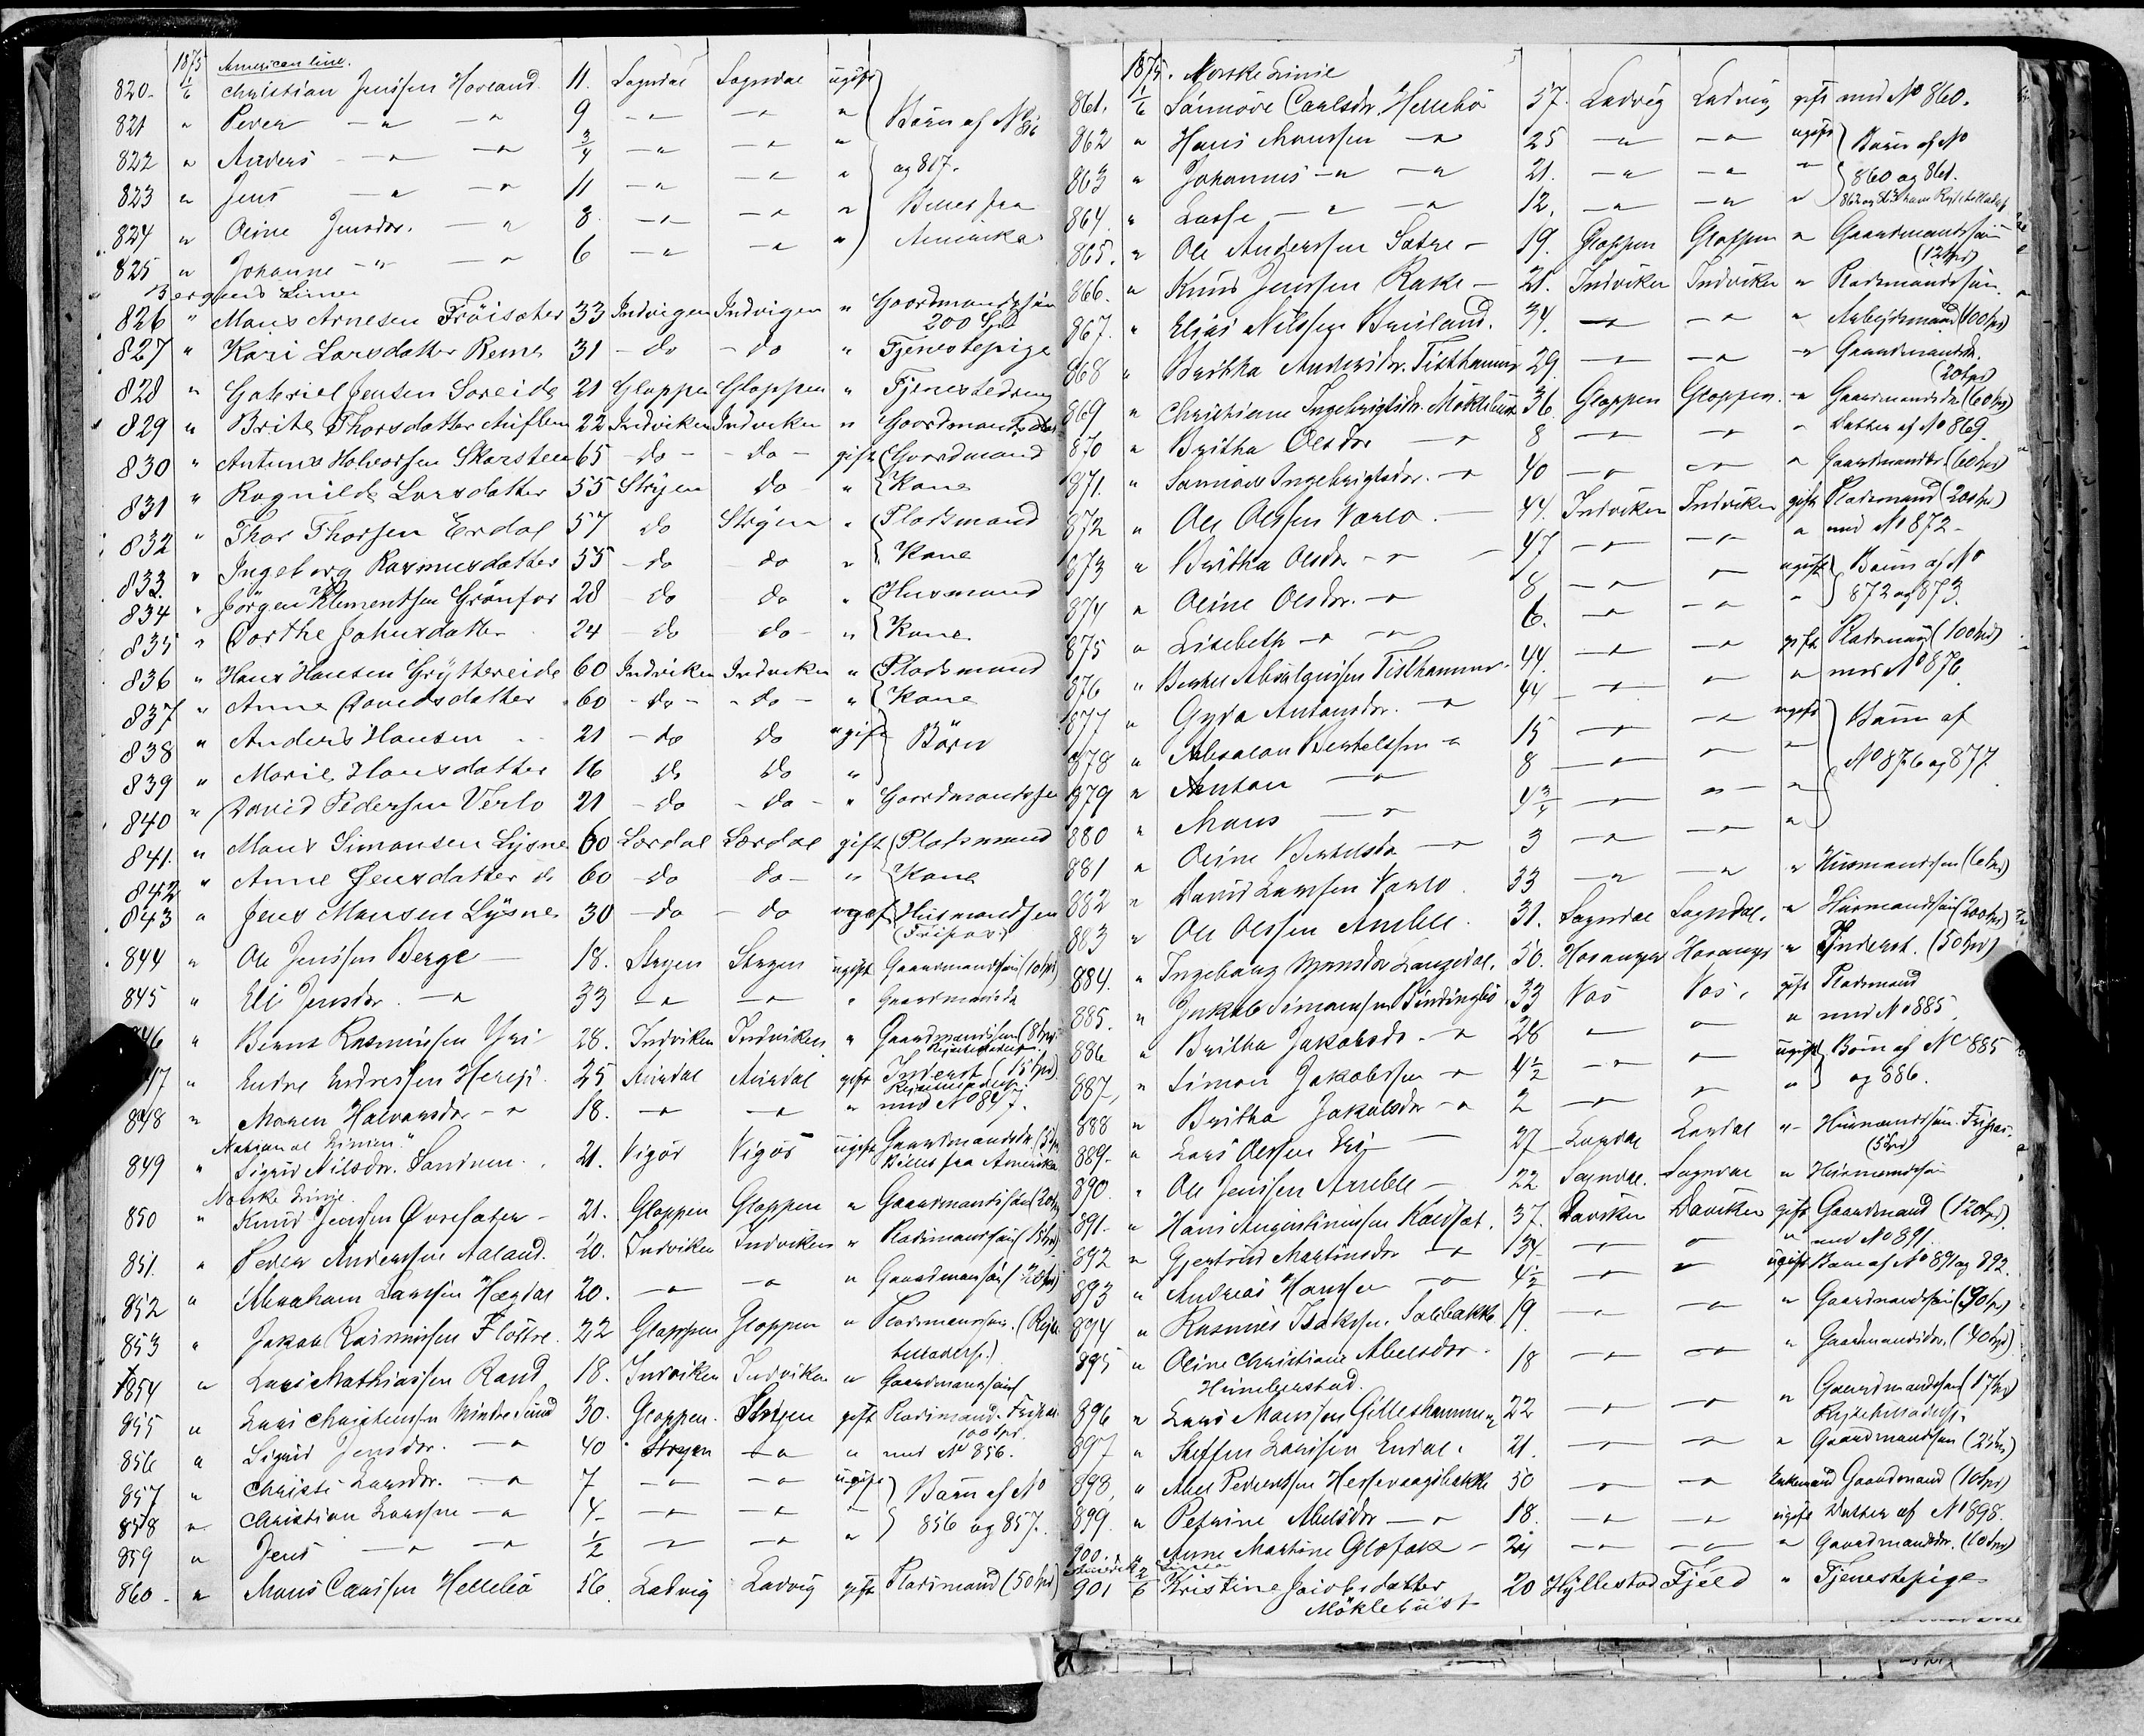 1875 American line.
820. 1/6 Christian Jenssen Hovland 11. Sogndal Sogndal ugift
821 " Peder — " — " 9 — " — " "
822 " Anders — " — " 3/4 — " — " "
823 " Jens — " — " 11 — " — " "
824 " Oline Jensdr. — " 8 — " — " "
825 " Johanne — " — " 6 — " — " "
Børn af No 816
og 817.
Billet fra
Amerika
Bergens Linie
826 " Mons Arnesen Fröisæter 33 Indvigen Indvigen " Gaardmandssön
200 Spd
827 " Kari Larsdatter Reme 31 - do - do " Tjenestepige
828 " Gabriel Jensen Soreide 21 Gloppen Gloppen " Tjenestedreng
829 " Brite Thorsdatter 22 Indviken Indviken " Gaardmands
830 " Antonus Halvorsen Skarsteen 65 - do - - do - gift Gaardmand
831 " Ragnilde Larsdatter 55 Stryen do " Kone
832 " Thor Thorsen Erdal 57 do Stryen " Pladsmand
833 " Ingeborg Rasmusdatter 55 - do do " Kone
834 " Jörgen Klementsen Grönfor 28 - do do " Husmand
835 " Dorthe Johnsdatter 24 - do do - " Kone
836 " Hans Hansen Gryttereide 60 Indviken Indviken " Pladsmand
837 " Anne Davidsdatter 60 - do - - do - " Kone
838 " Anders Hansen 21 - do do ugift Börn
839 " Marie Hansdatter 16 do do "
840 " David Pedersen Verlo 21 - do - do - " Gaardmandssön
841. " Mons Simonsen Lysne 60 Lærdal Lærdal gift Pladsmand
842 " Anne Jensdatter do 60 - do do - " Kone
843 " Jens Monsen Lysne 30 - do - do ugift Husmandssön
(Fripas)
844 " Ole Jenssen Berge — 18. Stryen Stryen ugift Gaardmandssön (10 Spd)
845 " Eli Jensdr. — " 33 — " — " " Gaardmandsdr
846 " Bernt Rasmussen Yri 28. Indviken Indviken " Gaardmandssön (8 Spd)
847 " Endre Endressen Hereid 25 Aurdal Aurdal gift Inderst (15 Spd).
848 " Maren Halvorsdr — " 18. — " — " " med No 847.
National Linien."
849 " Sigrid Nilsdr. Sandnen. 21. Vigør Vigør ugift Gaardmandsdr
Billet fra Amerika
Norske Linje.
850 " Knud Jenssen Øvresæter — 21. Gloppen Gloppen " Gaardmandssön
851. " Peder Anderssen Aaland. 20. Indviken Indviken " Pladsmandssön
852 " Abraham Larssen Hægdal 20. — " — " " Gaardmandssön
853 " Jakob Rasmussen Fløtre. 22 Gloppen Gloppen " Pladsmandssön. (Rejse
854 " Lars Mathiassen Rand 18. Indviken Indviken " Gaardmandssön
855 " Lars Christenssen Mindre Sund 30. Gloppen. Stryen gift Pladsmand. Fripas
100 Spd.
856 " Sigrid Jensdr. — " 40 Stryen — " " med No 856.
857 " Christi Larsdr. — " 7 — " — " ugift
858 " Christian Larssen — " 4 — " — " "
859 " Jens — " — " 1/2 — " — " "
Børn af No
856 og 857.
860 " Mons Carlssen Hellebö 56. Ladvig Ladvig gift Pladsmand (50 Spd)
1875. Norske Linie
861. 1/6 Sünnöve Carlsdr. Hellebö 57. Ladvig Ladvig gift med No 860.
862 " Hans Monssen — " 25 — " — " ugift
863 " Johannes — " — " 21. — " — " "
864. " Lasse — " — " 12. — " — " "
Børn af No
860 og 861.
865. " Ole Anderssen Sætre — 19. Gloppen Gloppen " Gaardmandssön
(12 Spd)
866. " Knud Jenssen Rake — 21. Indviken Indviken " Pladsmandssön.
867. " Elias Nilssen Brisland. 34. — " — " " Arbejdsmand (100 Spd)
868 " Britha Andersdr. Tisthammer 29 — " — " " Gaardmandsdr.
(20 Spd)
869 " Christiane Ingebrigtsdr. Møklebust 36 Gloppen Gloppen. " Gaardmandsdr. (60 Spd)
870 " Britha Olsdr — " 8 — " — " " Datter af No 869.
871. " Sünnöve Ingebrigtsdr. — " 40 — " — " " Gaardmandsdr. (60 Spd)
872 " Ole Olssen Værlo. — 44. Indviken Indviken gift Pladsmand (200 Spd)
873 " Britha Olsdr — " — 47 — " — " " med No 872 -
874 " Oline Olsdr. — " 8 — " — " ugift
875 " Lisebeth — " — " 6. — " — " "
Børn af No
872 og 873.
876 " Berthel Absalonssen Tisthammer. 44. — " — " gift Pladsmand (100 Spd)
877 " Gyda Antonsdr. — " 44 — " — " " med No 876
878 " Absalon Berthelssen — " 15 — " — " ugift
879 " Anton — " 8 — " — " "
880 " Mons — " 4 3/4 — " — " "
881 " Oline Berthelsdr — " 3 — " — " "
Børn af
No 876 og 877.
882 " David Larssen Værlo. 33 — " — " " Husmandssön (60 Spd)
883 " Ole Olssen Amble. 31. Sogndal Sogndal. " Husmandssön (200 Spd)
884. " Ingeborg Monsdr Langedal. 50. Hosanger Hosanger " Inderst. (50 Spd)
885. " Jakob Simonssen 33 Vos Vos. gift Pladsmand
886 " Britha Jakobsdr. — " 28 — " — " " med No 885.
887. " Simon Jakobssen — " 4 1/2 — " — " ugift
888 " Britha Jakobsdr — " 2 — " — " "
Børn af No 885
og 886.
889. " Lars Olssen Eri — 27 Lærdal Lærdal " Husmandssön. Fripas.
(5 Spd)
890. " Ole Jenssen Amble — 22 Sogndal. Sogndal " Husmandssön
891. " Hans Augustinussen Koldsæt. 37. Daviken Daviken gift Gaardmand (120 Spd).
892 " Gjertrud Martinusdr — " 34. — " — " " med No 891.
893 " Andreas Hanssen — " 4 1/2 — " — " ugift Barn af No 891 og 892.
894 " Rasmus Isakssen. 19. — " — " " Gaardmandssön (90 Spd)
895 " Oline Christiane Abelsdr. 18 — " — " " Gaardmandsdr. (40 Spd)
896 " Lars Monssen Gilleshammer 22 — " — " " Gaardmandssön (17 Spd)
897 " Steffen Larssen Endal. 21. — " — " " Gaardmandssön
898. " Abel Pederssen Hessevaagsbakke 50 — " — " Enkemand Gaardmand (10 Spd)
899. " Petrine Abelsdr — " 18. — " — " ugift Datter af No 898.
900. " Anne Martine Glofak — 21 — " — " " Gaardmandsdr. (100 Spd)
901 2/6 Kristine Jacobsdatter 20 Hyllestad Fjeld " Tjenestepige
Möklebust